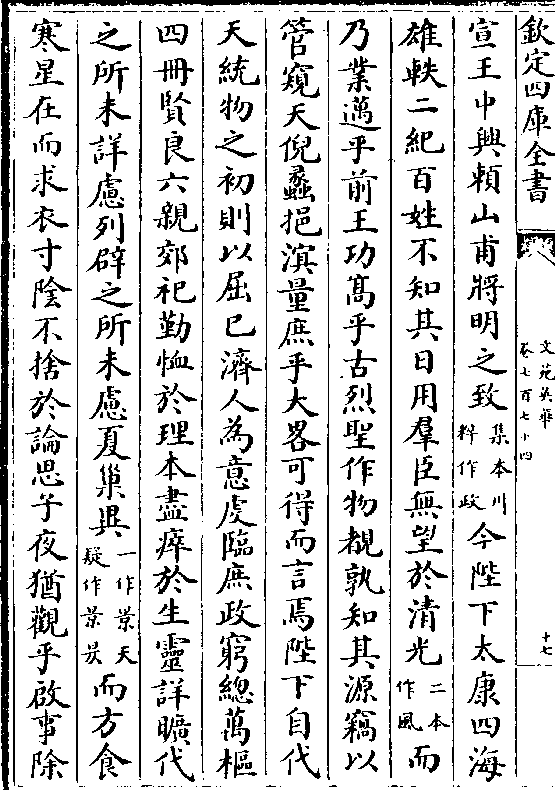 欽定四庫全書
文苑英華
卷七百七十四
十七
宣王中興頼山甫將明之致集本川粹作政今陛下太康四海
雄軼二紀百姓不知其日用羣臣無望於清光二本作風而
乃業邁乎前王功髙乎古烈聖作物覩孰知其源竊以
管窺天倪蠡挹溟量庶乎大畧可得而言焉陛下自代
天統物之初則以屈已濟人為意䖍臨庶政窮總萬樞
四冊賢良六親郊祀勤恤於理本盡瘁於生靈詳曠代
之所未詳慮列辟之所未慮夏巢㒷一作景天疑作景昃而方食
寒星在而求衣寸陰不捨於論思子夜猶觀乎啟事除